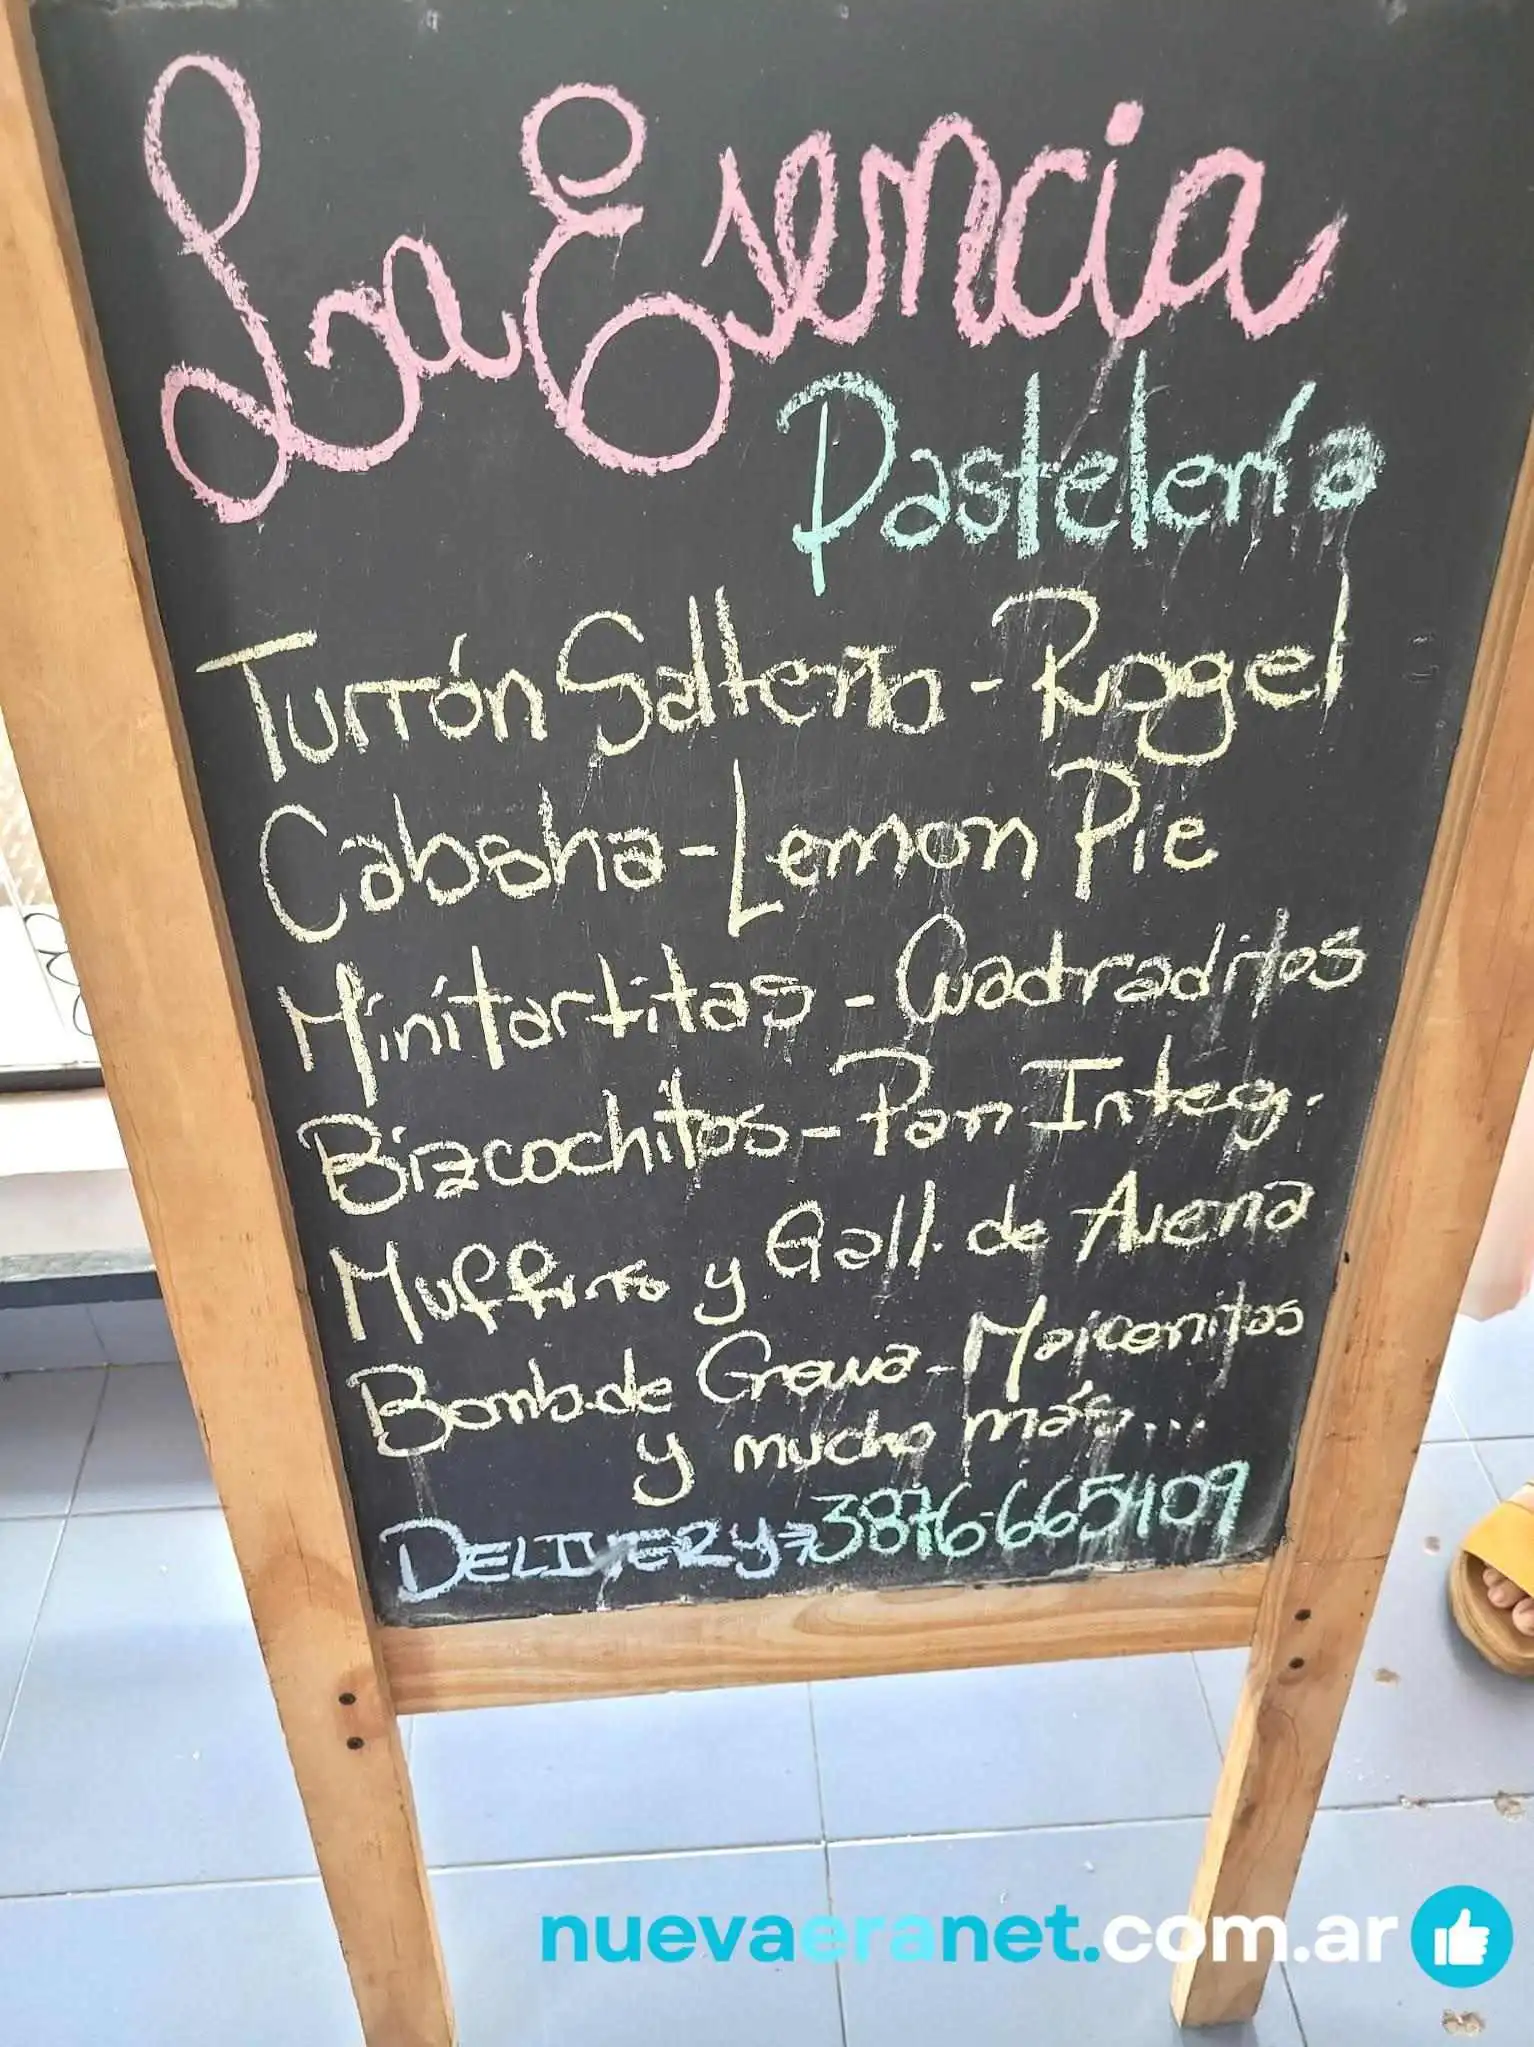 La Esencia
Pastelería
Turrón Salteño - Rogel
Cabsha - Lemon Pie
Minitartitas - Cuadraditos
Bizcochitos - Pan Integ.
Muffins y Gall. de Avena
Bomb. de Grana - Maicenitas
y mucho más...
DELIVERY 3876-665409
nuevaeranet.com.ar